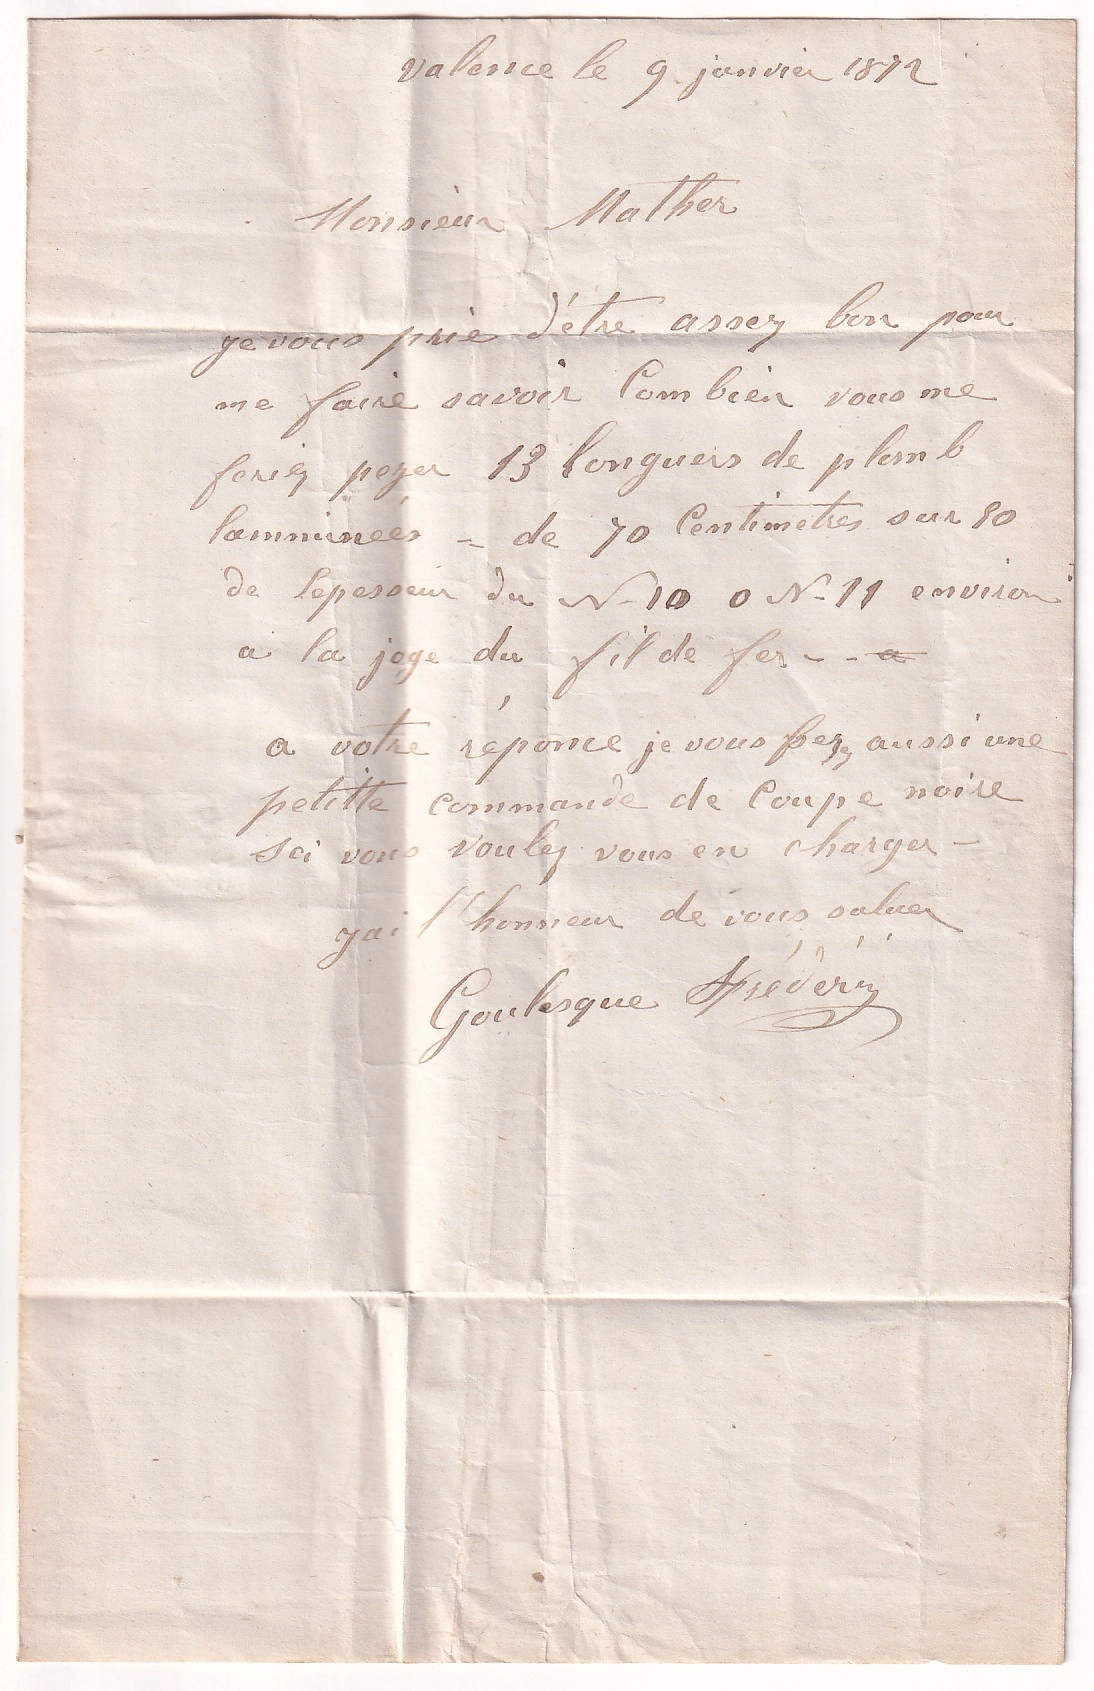 Valence le 9 janvier 1872
Monsieur Mather
ye vous prie d'étre assez bon pour
me faire savoir Combien vous me
feriez peyer 13 longuers de plomb
lamminées - de 70 Centimetres sur 80
de lepesseur du N-10 o N-11 environ
a la joge du fil de fer - - a
a votre réponce je vous ferez aussi une
petitte commande de Coupe noire
sci vous voulez vous en charger -
yai l'honneur de vous saluer
Goulesque Frédéric